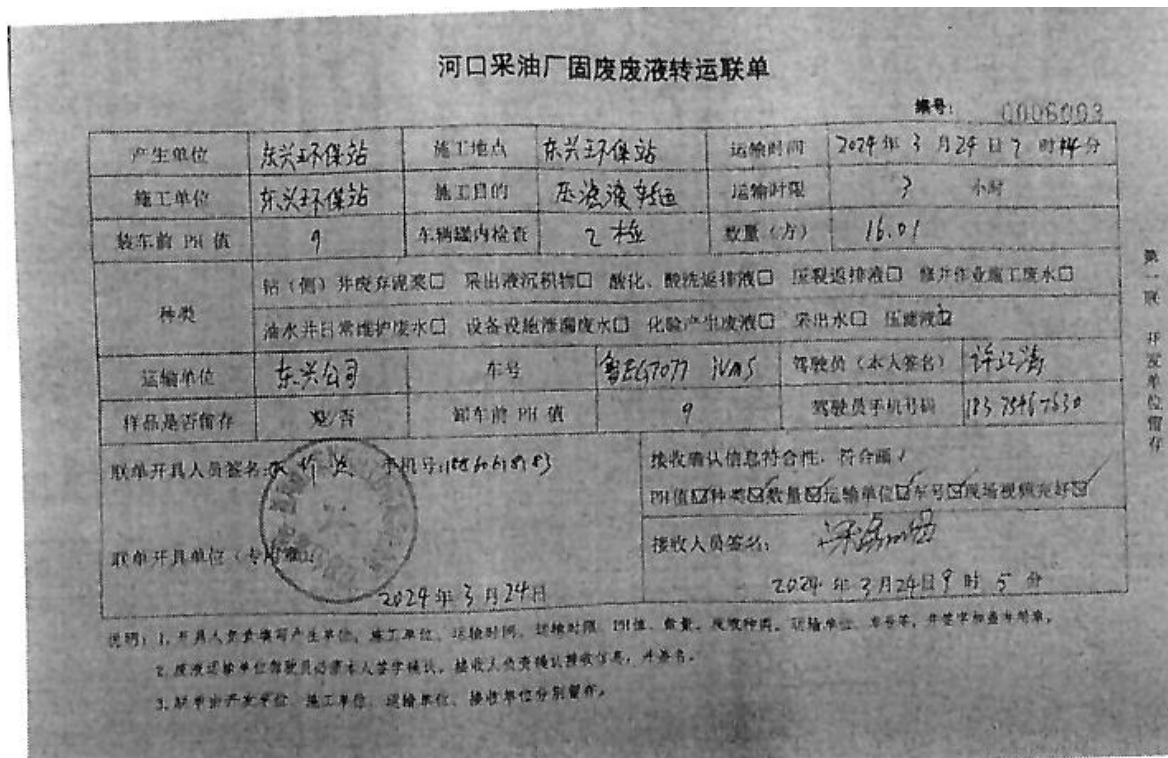 河口采油厂固废废液转运联单
编号: 0006003
产生单位 东兴环保站 施工地点 东兴环保站 运输时间 2024年3月24日7时 分
施工单位 东兴环保站 施工目的 压滤液转运 运输时限 3 小时
装车前 PH 值 9 车辆罐内检查 已检 数量(方) 16.01
种类
钻(侧)井废弃泥浆□ 采出液沉积物□ 酸化、酸洗返排液□ 压裂返排液□ 修井作业施工废水□
油水井日常维护废水□ 设备设施泄漏废水□ 化验产生废液□ 采出水□ 压滤液☑
运输单位 东兴公司 车号 鲁EG7077 驾驶员(本人签名) 许江涛
样品是否留存 是/否 卸车前 PH 值 9 驾驶员手机号码 183 7546 7630
联单开具人员签名: 手机号:
接收确认信息符合性,符合画√
PH值☑种类☑数量☑运输单位☑车号☑现场视频完好☑
联单开具单位(专用章):
接收人员签名:
2024年3月24日
2024年3月24日9时5分
说明:1.开具人负责填写产生单位、施工单位、运输时间、运输时限、PH值、数量、废液种类、运输单位、车号等,并签字加盖专用章。
2.废液运输单位驾驶员必须本人签字确认,接收人负责确认接收信息,并签名。
3.联单由开发单位、施工单位、运输单位、接收单位分别留存。
第一联 开发单位留存